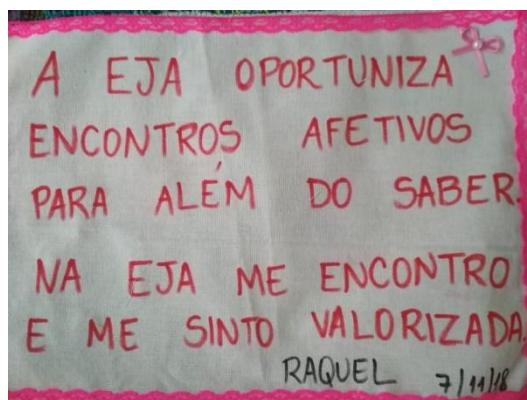 A EJA OPORTUNIZA
ENCONTROS AFETIVOS
PARA ALÉM DO SABER.
NA EJA ME ENCONTRO
E ME SINTO VALORIZADA.
RAQUEL 7/11/18